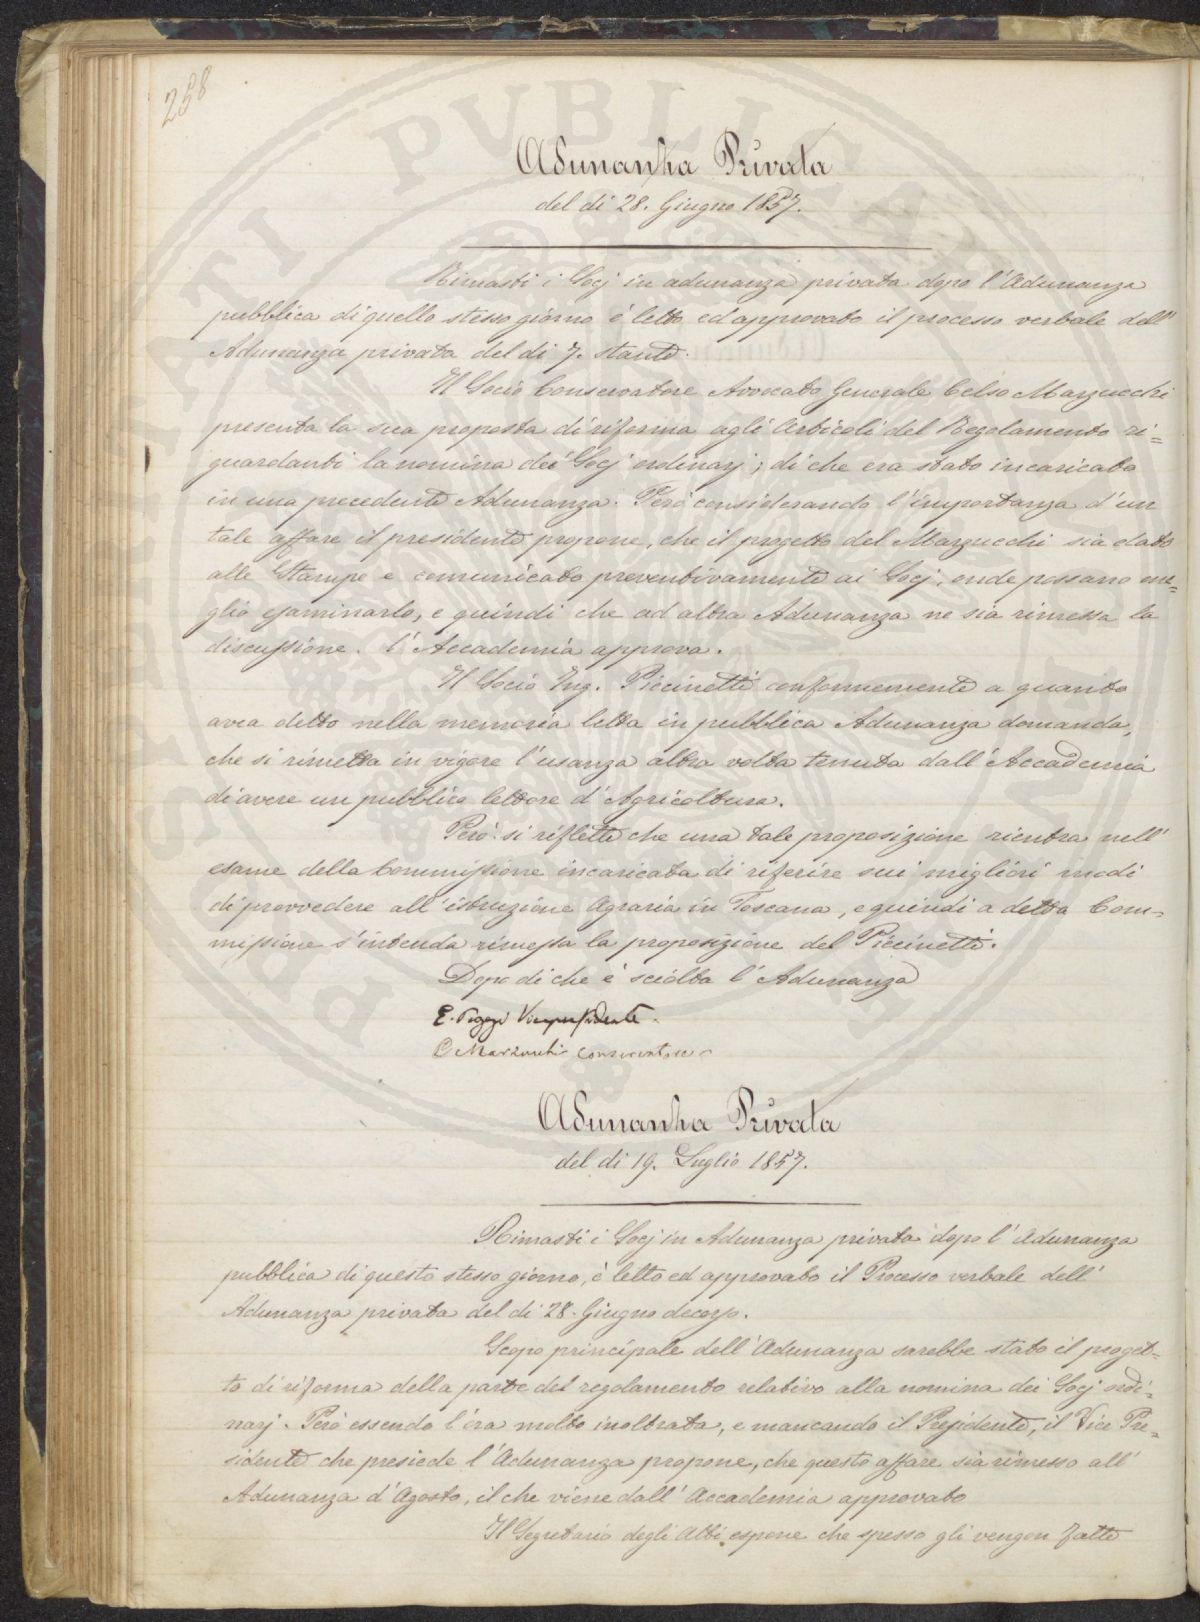 258
Adunanza Privata
del di 28. Giugno 1857.
Rimasti i Socj in adunanza privata dopo l'Adunanza
pubblica di quello stesso giorno è letto ed approvato il processo verbale dell'
Adunanza privata del di 7. stante.
Il Socio Conservatore Avvocato Generale Celso Marzucchi
presenta la sua proposta di riforma agli Articoli del Regolamento ri=
guardanti la nomina dei Socj ordinarj; di che era stato incaricato
in una precedente Adunanza. Però considerando l'importanza d'un
tale affare il presidente propone, che il progetto del Marzucchi sia dato
alle Stampe e comunicato preventivamente ai Socj, onde possano me=
glio esaminarlo, e quindi che ad altra Adunanza ne sia rimessa la
discussione. L'Accademia approva.
Il Socio Ing. Piccinetti conformemente a quanto
avea detto nella memoria letta in pubblica Adunanza domanda,
che si rimetta in vigore l'usanza altra volta tenuta dall'Accademia
di avere un pubblico lettore d'Agricoltura.
Però si riflette che una tale proposizione rientra nell'
esame della Commissione incaricata di riferire sui migliori modi
di provvedere all'istruzione Agraria in Toscana, e quindi a detta Com=
missione s'intenda rimessa la proposizione del Piccinetti.
Dopo di che è sciolta l'Adunanza
E. Poggi Vicepresidente
C Marzucchi conservatore
Adunanza Privata
del di 19. Luglio 1857.
Rimasti i Socj in Adunanza privata dopo l'Adunanza
pubblica di questo stesso giorno, è letto ed approvato il Processo verbale dell'
Adunanza privata del di 28. Giugno decorso.
Scopo principale dell'Adunanza sarebbe stato il proget=
to di riforma della parte del regolamento relativo alla nomina dei Socj ordi=
narj. Però essendo l'ora molto inoltrata, e mancando il Presidente, il Vice Pre=
sidente che presiede l'Adunanza propone, che questo affare sia rimesso all'
Adunanza d'Agosto, il che viene dall'Accademia approvato
Il Segretario degli Atti espone che spesso gli vengon fatte